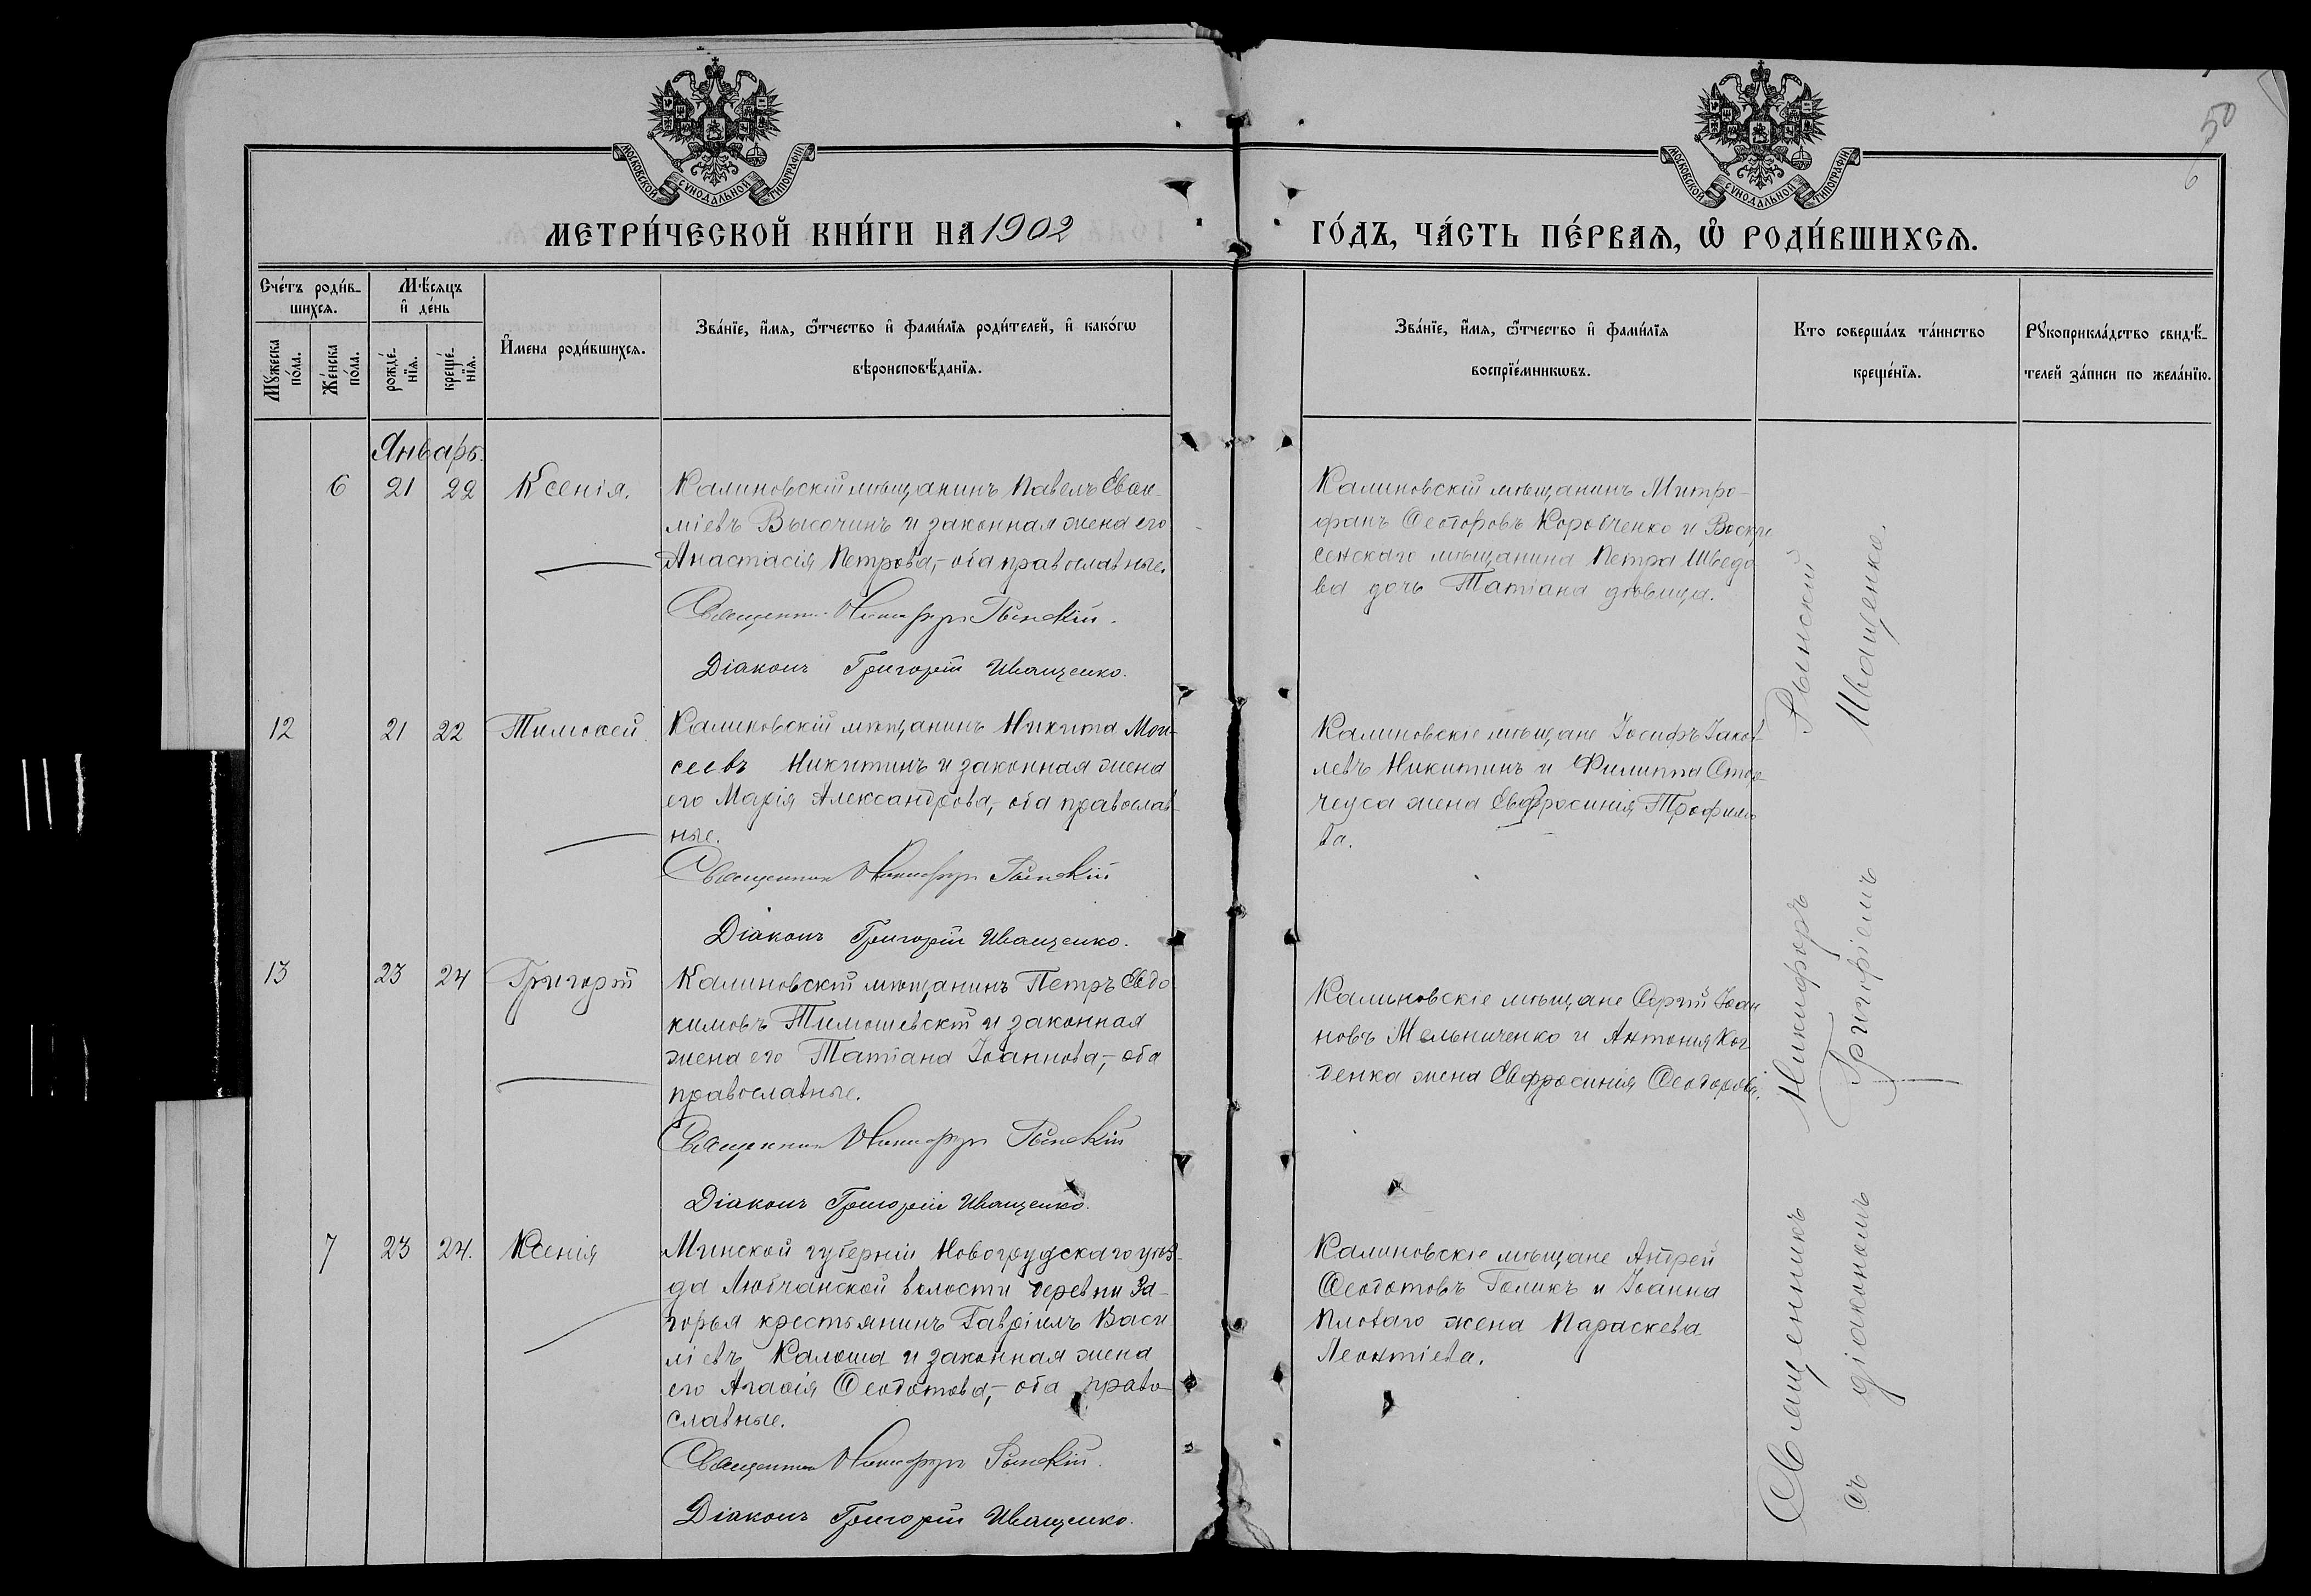 50
6
МОСКОВСКОЙ СѴНОДАЛЬНОЙ ТИПОГРАФІИ
МОСКОВСКОЙ СѴНОДАЛЬНОЙ ТИПОГРАФІИ
МЕТРИ́ЧЕСКОЙ КНИ́ГИ НА 1902
ГО́ДЪ, ЧА́СТЬ ПЕ́РВАѦ, Ѡ҆ РОДИ́ВШИХСѦ.
Сче́тъ роди́в-
шихсѧ.
Мꙋ́жеска по́ла.
Же́нска по́ла.
Мѣ́сѧцъ
и҆ де́нь
рожде́-
нїѧ.
креще́-
нїѧ.
И҆мена роди́вшихсѧ.
Зва́нїе, и҆́мѧ, ѻ҆́тчество и҆ фами́лїѧ роди́телей, и҆ како́гѡ
вѣроисповѣ́данїѧ.
Зва́нїе, и҆́мѧ, ѻ҆́тчество и҆ фами́лїѧ
воспрїе́мникѡвъ.
Кто соверша́лъ та́инство
креще́нїѧ.
Рꙋкоприкла́дство свидѣ́-
телей за́писи по жела́нїю.
Январь.
6 21 22 Ксенія.
Калиновскій мѣщанинъ Павелъ
міевъ Высочинъ и законная жена его
Анастасія Петрова,- оба православные.
Священникъ Никифоръ Рынскій.
Діаконъ Григорій Иващенко.
Калиновскій мѣщанинъ Митро-
фанъ Ѳеодоровъ Коровченко и Воскре
сенскаго мѣщанина Петра Шведо
ва дочь Татіана дѣвица.
12 21 22 Тимоѳей.
Калиновскій мѣщанинъ Никита Мои-
сеевъ Никитинъ и законная жена
его Марія Александрова,- оба православ-
ные.
Священникъ Никифоръ Рынскій
Діаконъ Григорій Иващенко.
Калиновскіе мѣщане Іосифъ Іаков-
левъ Никитинъ и Филиппа
жена Евфросинія Трофимо
ва.
13 23 24 Григорій
Калиновскій мѣщанинъ Петръ Евдо
кимовъ Тимошевскій и законная
жена его Татіана Іоаннова,- оба
православные.
Священникъ Никифоръ Рынскій
Діаконъ Григорій Иващенко.
Калиновскіе мѣщане Сергій Іоан
новъ Мельниченко и Антонія
жена Евфросинія Ѳеодорова.
7 23 24. Ксенія
Минской губерніи Новогрудскаго уѣз-
да Любчанской волости деревни За-
горья крестьянинъ Гавріилъ Васи
ліевъ Калоша и законная жена
его Агаѳія Ѳеодотова,- оба право-
славные.
Священникъ Никифоръ Рынскій.
Діаконъ Григорій Иващенко.
Калиновскіе мѣщане Андрей
Ѳеодотовъ Голикъ и Іоанна
жена Параскева
Леонтіева.
Священникъ Никифоръ Рынскій
съ діакономъ Григоріемъ Иващенко.